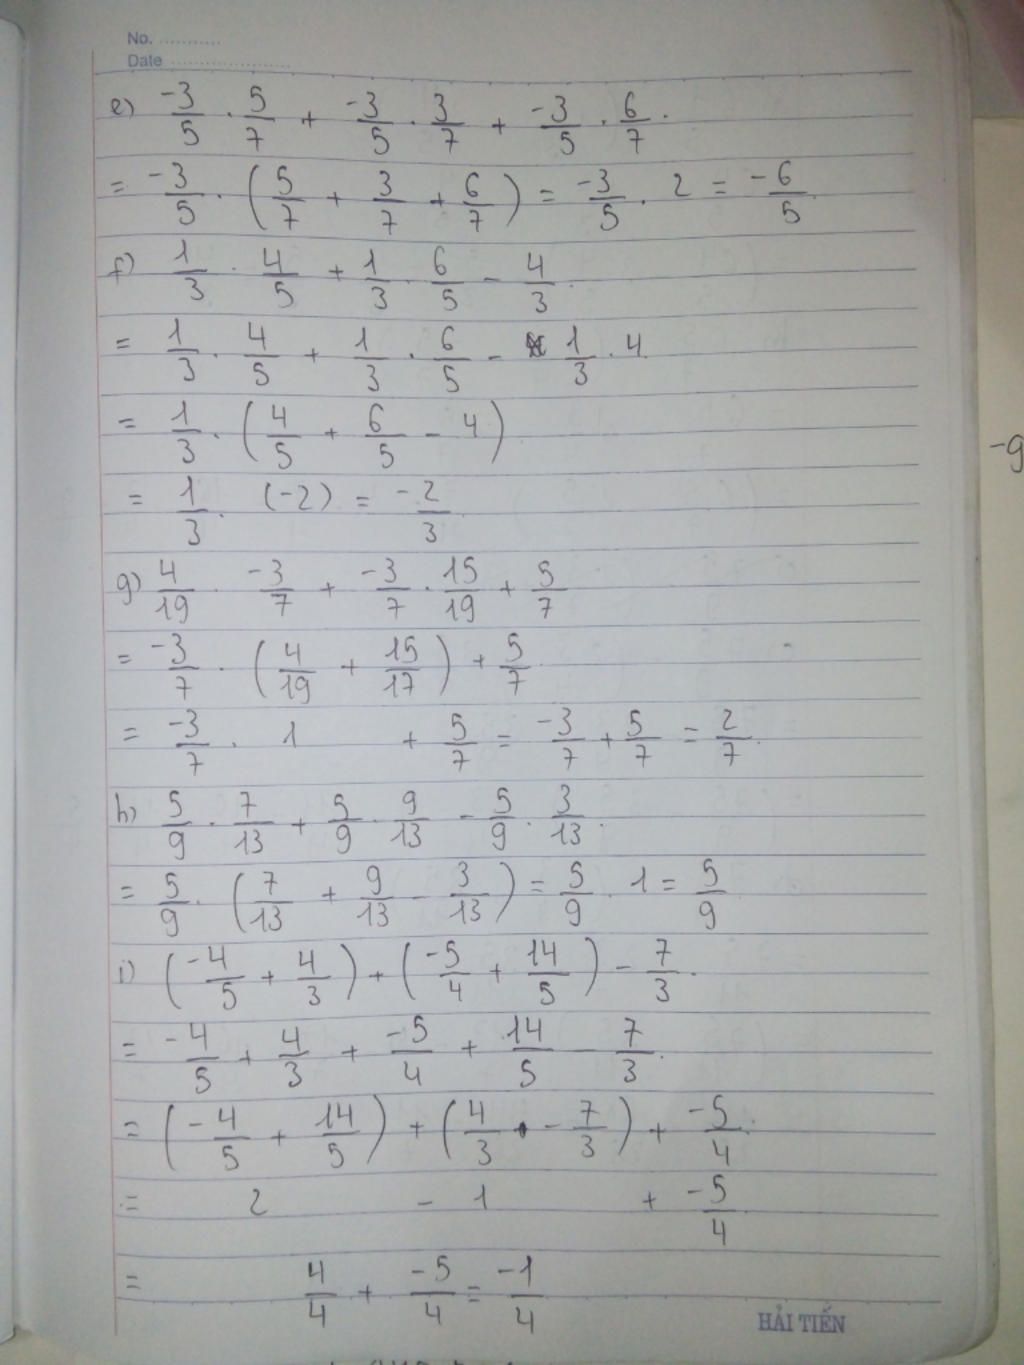 No. ...........
Date .....................
e) -3/5 . 5/7 + -3/5 . 3/7 + -3/5 . 6/7.
= -3/5 . (5/7 + 3/7 + 6/7) = -3/5 . 2 = -6/5.
f) 1/3 . 4/5 + 1/3 . 6/5 - 4/3.
= 1/3 . 4/5 + 1/3 . 6/5 - 1/3 . 4
= 1/3 . (4/5 + 6/5 - 4)
= 1/3 . (-2) = -2/3
g) 4/19 . -3/7 + -3/7 . 15/19 + 5/7
= -3/7 . (4/19 + 15/17) + 5/7
= -3/7 . 1 + 5/7 = -3/7 + 5/7 = 2/7.
h) 5/9 . 7/13 + 5/9 . 9/13 - 5/9 . 3/13.
= 5/9 . (7/13 + 9/13 - 3/13) = 5/9 . 1 = 5/9
i) (-4/5 + 4/3) + (-5/4 + 14/5) - 7/3.
= -4/5 + 4/3 + -5/4 + 14/5 - 7/3.
= (-4/5 + 14/5) + (4/3 - 7/3) + -5/4.
= 2 - 1 + -5/4
= 4/4 + -5/4 = -1/4
HẢI TIẾN
-9